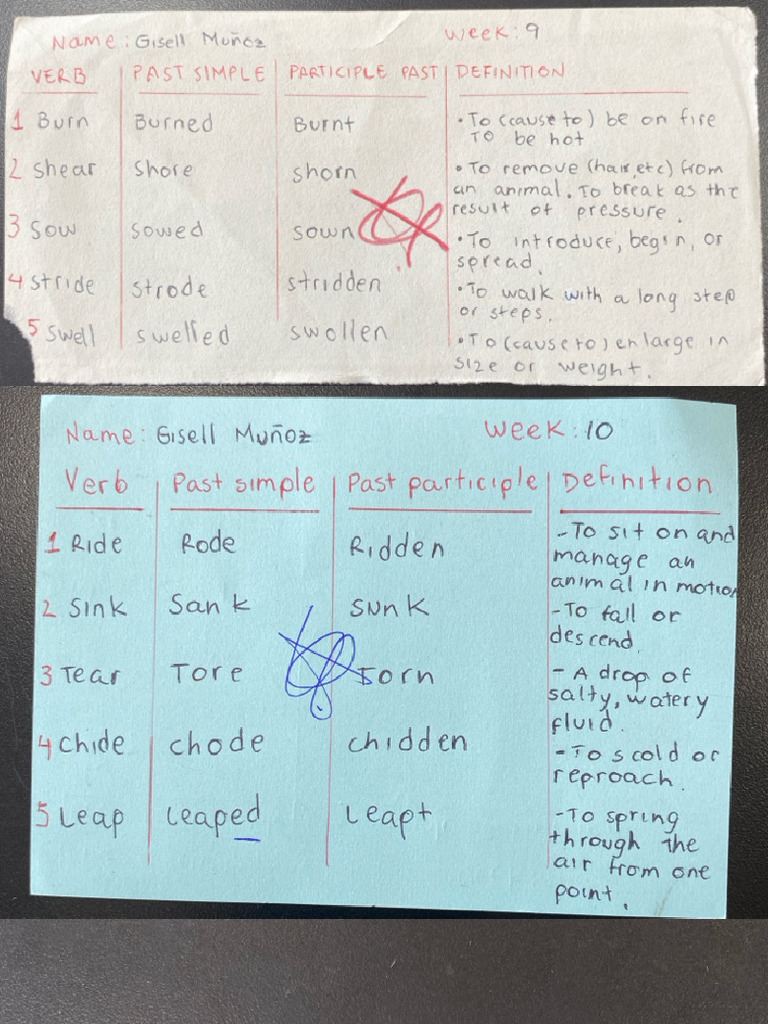 Name: Gisell Muñoz Week: 9
VERB PAST SIMPLE PARTICIPLE PAST DEFINITION
1 Burn Burned Burnt • To (cause to) be on fire
To be hot
2 shear shore shorn • To remove (hair, etc) from
an animal. To break as the
result of pressure.
3 Sow sowed sown • To introduce, begin, or
spread.
4 stride strode stridden • To walk with a long step
or steps.
5 swell swelled swollen • To (cause to) enlarge in
size or weight.
Name: Gisell Muñoz Week: 10
Verb Past simple Past participle Definition
1 Ride Rode Ridden - To sit on and
manage an
animal in motion
2 Sink Sank sunk - To fall or
descend.
3 Tear Tore Torn - A drop of
salty, watery
fluid.
4 chide chode chidden - To scold or
reproach.
5 Leap Leaped Leapt - To spring
through the
air from one
point.